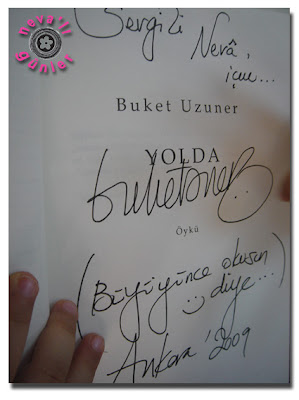 neva'lı
günler
Sevgili Nevâ,
için...
Buket Uzuner
YOLDA
buketuzuner
Öykü
(Büyüyünce okusun
diye...)
Ankara '2009